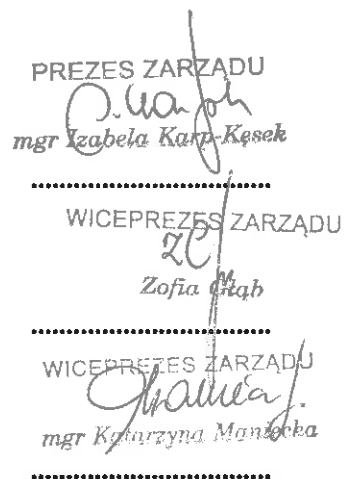 PREZES ZARZĄDU
mgr Izabela Karp-Kęsek
WICEPREZES ZARZĄDU
Zofia Głąb
WICEPREZES ZARZĄDU
mgr Katarzyna Maniecka